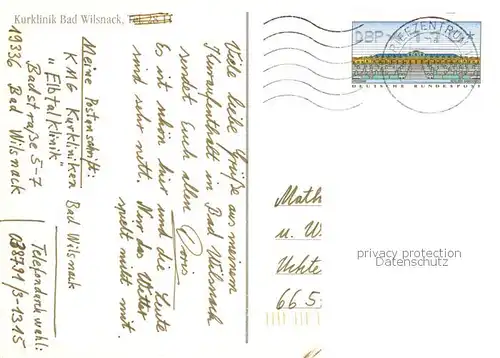 Kurklinik Bad Wilsnack, Tel. 28 14
Viele liebe Grüße aus meinem
Kuraufenthalt in Bad Wilsnack
sendet Euch allen Doris
Es ist schön hier und die Leute
sind sehr nett. Nur das Wetter
spielt nicht mit.
Meine Postanschrift:
KMG Kurkliniken Bad Wilsnack
"Elbtalklinik"
Badstraße 5-7
19336 Bad Wilsnack
Telefondurchwahl:
038791/3-1315
DBP
BRIEFZENTRUM
DEUTSCHE BUNDESPOST
Math
u. W
Uchte
665
privacy protection
Datenschutz